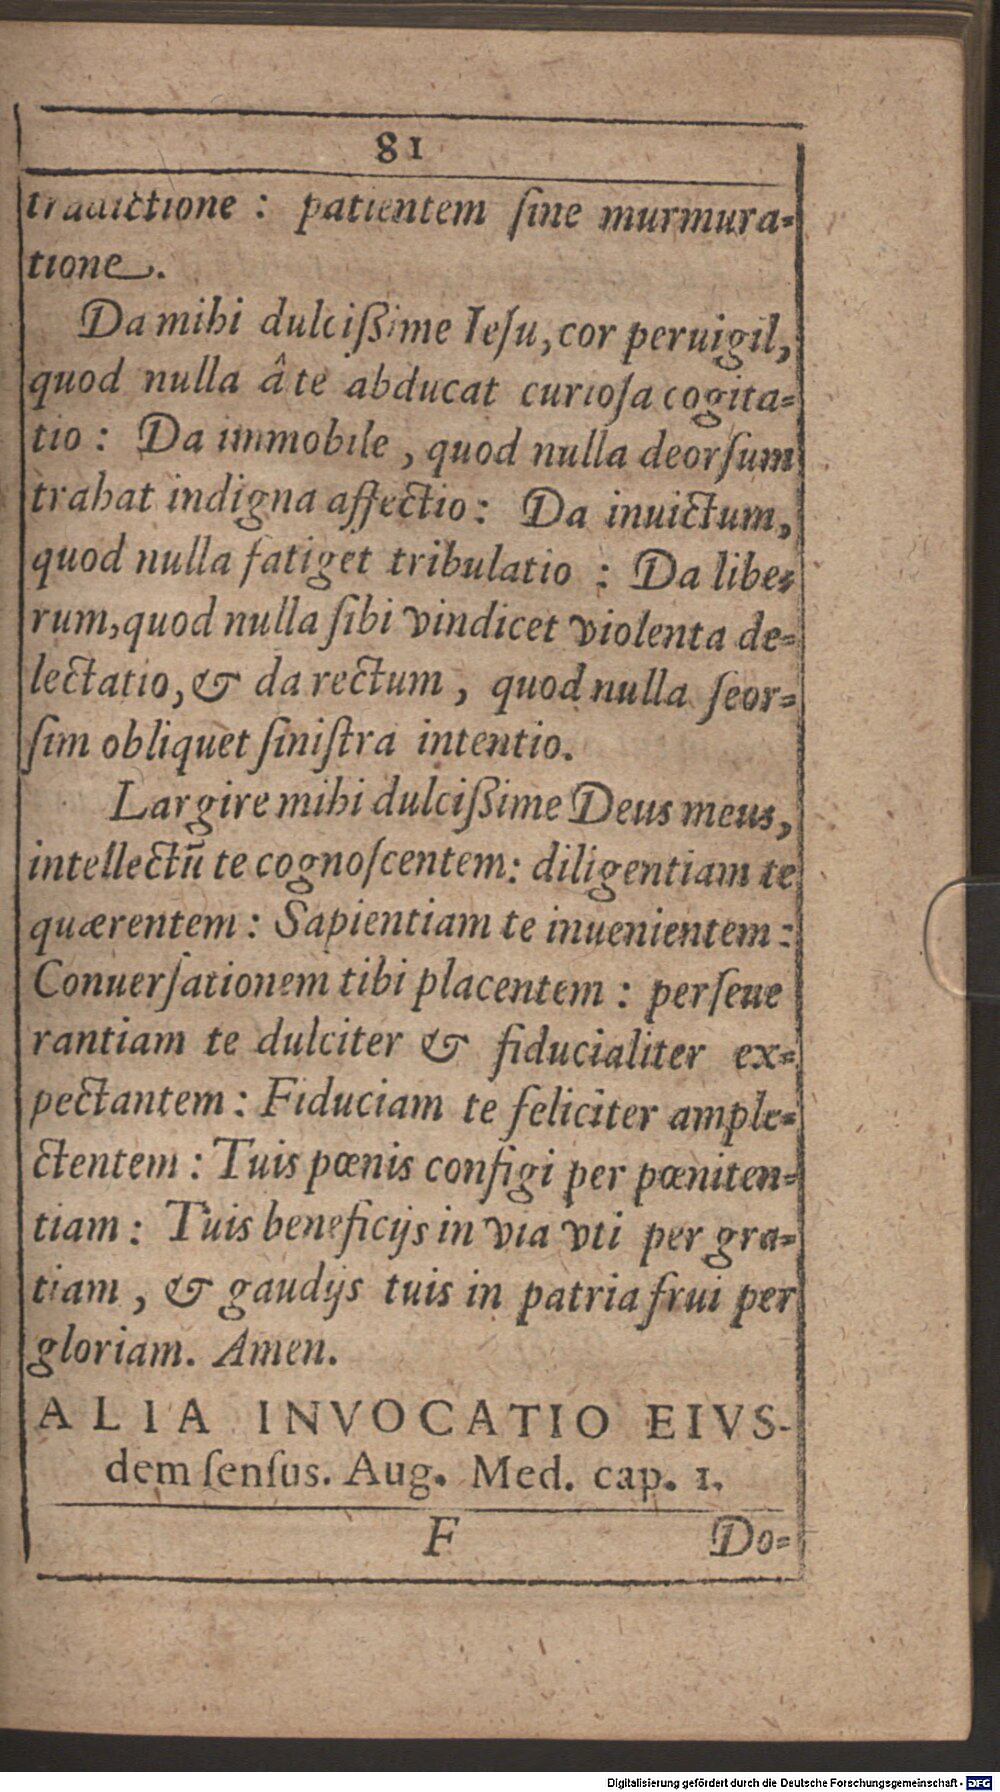 81
tradictione : patientem ſine murmura-
tione.
Da mihi dulcißime Ieſu, cor peruigil,
quod nulla â te abducat curioſa cogita-
tio : Da immobile , quod nulla deorſum
trahat indigna affectio : Da inuictum,
quod nulla fatiget tribulatio : Da libe-
rum, quod nulla ſibi vindicet violenta de-
lectatio, & da rectum , quod nulla ſeor-
ſim obliquet ſiniſtra intentio.
Largire mihi dulcißime Deus meus,
intellectū te cognoſcentem : diligentiam te
quærentem : Sapientiam te inuenientem :
Conuerſationem tibi placentem : perſeue
rantiam te dulciter & fiducialiter ex-
pectantem : Fiduciam te feliciter ample-
ctentem : Tuis pœnis configi per pœniten-
tiam : Tuis beneficijs in via vti per gra-
tiam , & gaudijs tuis in patria frui per
gloriam. Amen.
ALIA INVOCATIO EIVS-
dem ſenſus. Aug. Med. cap. 1.
F Do-
Digitalisierung gefördert durch die Deutsche Forschungsgemeinschaft - DFG